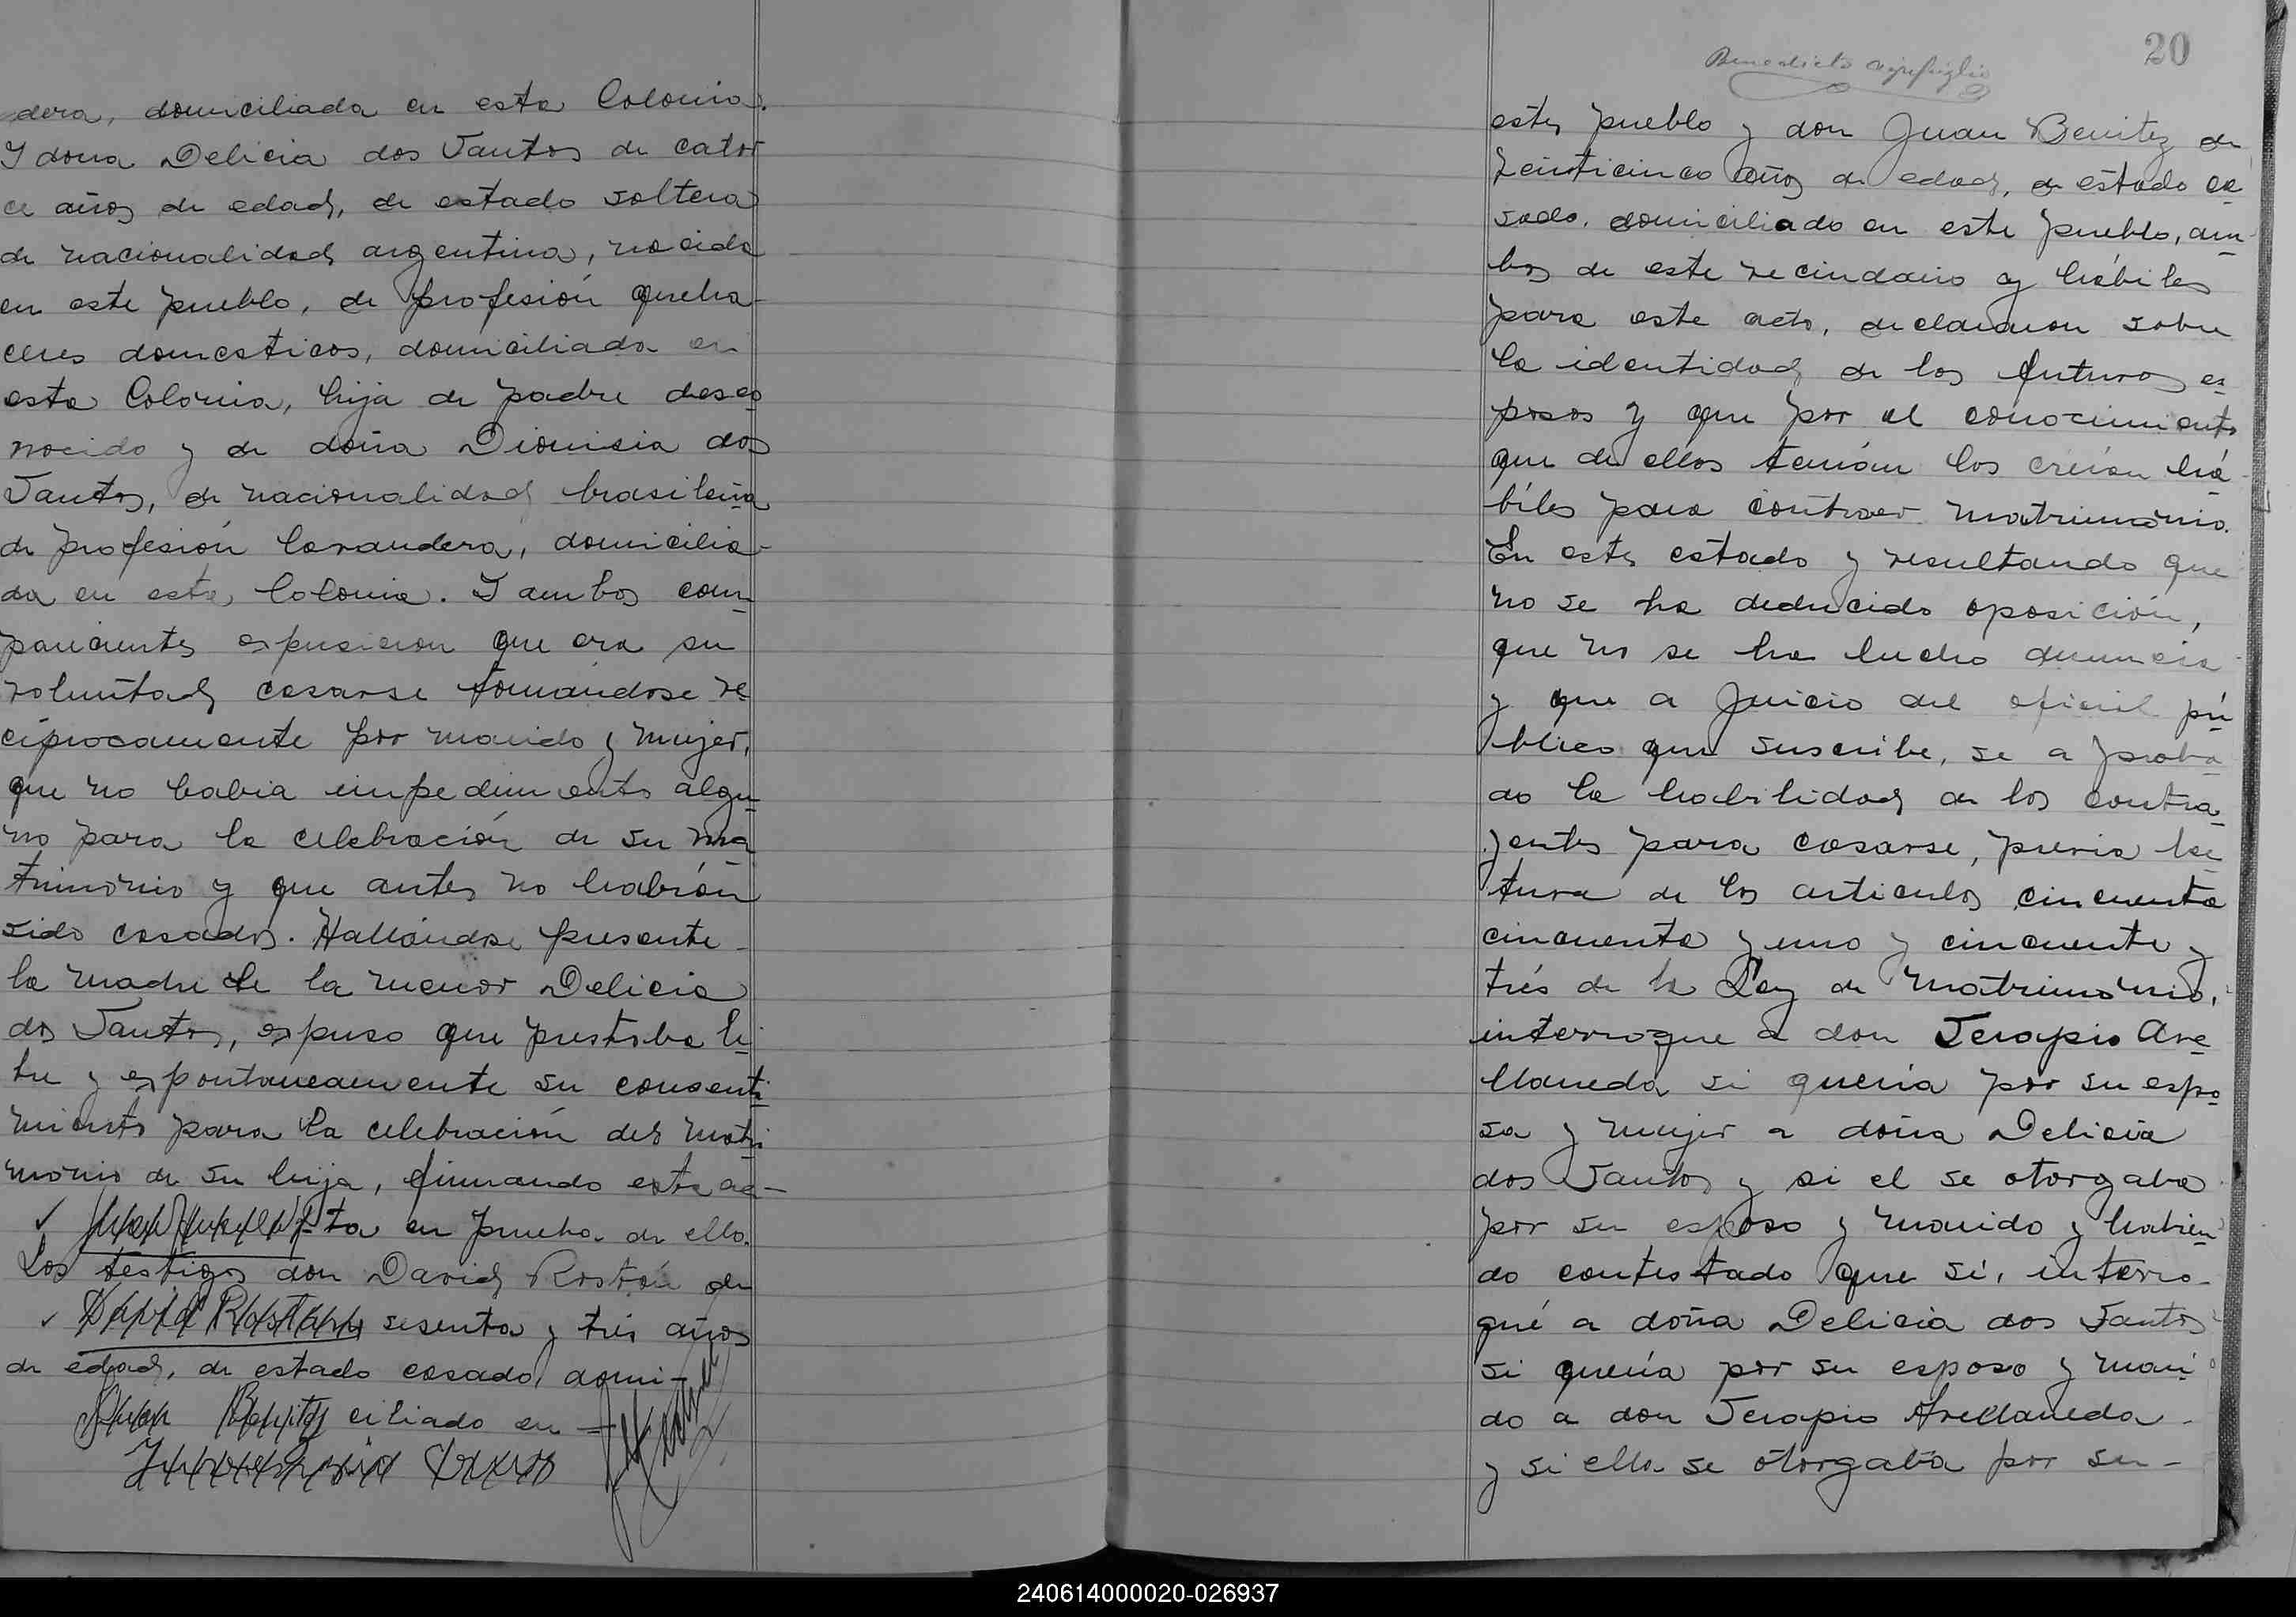 dera, domiciliada en esta Colonia.
Y dona Delicia dos Santos de cator
ce años de edad, de estado soltera
de nacionalidad argentina, nacida
en este pueblo, de profesión queha-
ceres domesticos, domiciliada en
esta Colonia, hija de padre desco
nocido y de doña Dionisia dos
Santos, de nacionalidad brasileña
de profesión lavandera, domicilia-
da en esta Colonia. Y ambos com
parecientes espusieron que era su
voluntad casarse tomandose re
ciprocamente por marido y mujer,
que no habia impedimento algu
no para la celebración de su ma
trimonio y que antes no habían
sido casados. Hallándose presente
la madre de la menor Delicia
dos Santos, espuso que prestaba li
bre y espontaneamente su consenti
miento para la celebración del matri
monio de su hija, firmando esta ac-
ta en prueba de ello.
Los testigos don David Rostán de
David Rostan sesenta y trés años
de edad, de estado casado, domi-
Juan Benitez ciliado en
20
Benedicto
este pueblo y don Juan Benitez de
veinticinco años de edad, de estado ca
sado, domiciliado en este pueblo, am
bos de este vecindario y hábiles
para este acto, declararon sobre
la identidad de los futuros es
posos y que por el conocimiento
que de ellos tenían los creían há
biles para contraer matrimonio.
En este estado y resultando que
no se ha deducido oposición,
que no se ha hecho denuncia
y que a juicio del oficial pú
blico que suscribe, se a proba
do la habilidad de los contra
yentes para casarse, previa lec
tura de los articulos cincuenta
cincuenta y uno y cincuenta y
trés de la Ley de Matrimonio,
interrogue a don Serapio Ave
llaneda si quería por su espo
sa y mujer a doña Delicia
dos Santos y si el se otorgaba
por su esposo y marido y habien
do contestado que sí, interro-
gué a doña Delicia dos Santos
si quería por su esposo y mari
do a don Serapio Avellaneda
y si ella se otorgaba por su-
240614000020-026937